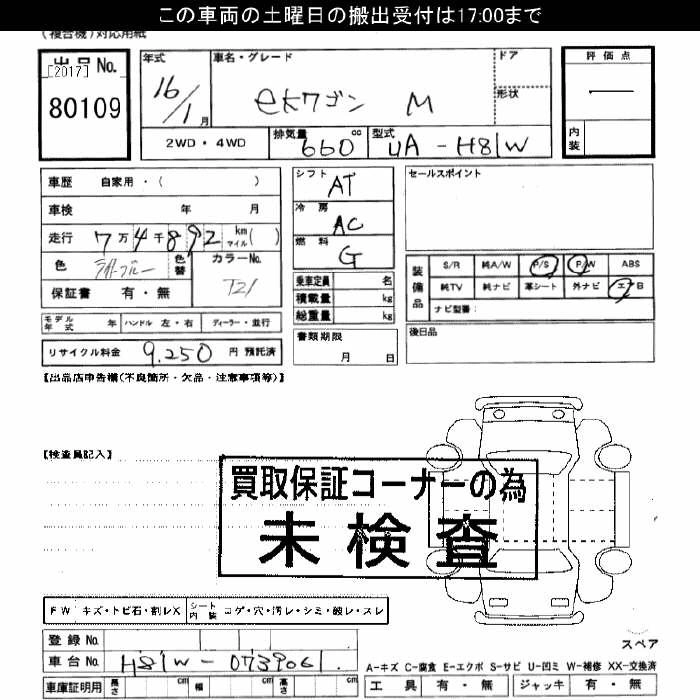 この車両の土曜日の搬出受付は17:00まで
(複合機)対応用紙
出品No.
[2017]
80109
年式
16/1月
車名・グレード
ekワゴン M
ドア
形状
評価点
—
内装
2WD・4WD
排気量 660 cc
型式 UA-H81W
車歴 自家用・( )
車検 年 月
走行 7万4千892 km マイル( )
色 ライトブルー 色替
カラーNo. T21
保証書 有・無
シフト AT
冷房 AC
燃料 G
乗車定員 名
積載量 kg
総重量 kg
セールスポイント
装備品
S/R 純A/W P/S P/W ABS
純TV 純ナビ 革シート 外ナビ エアB
ナビ型番:
モデル年式 年 ハンドル 左・右 ディーラー・並行
書類期限
月 日
後日品
リサイクル料金 9,250 円 預託済
【出品店申告欄(不良箇所・欠品・注意事項等)】
【検査員記入】
買取保証コーナーの為
未検査
FW キズ・トビ石・割レX
シート内装 コゲ・穴・汚レ・シミ・破レ・スレ
登録No.
車台No. H81W-0739061
スペア
A-キズ C-腐食 E-エクボ S-サビ U-凹ミ W-補修 XX-交換済
車庫証明用 長さ cm 幅 cm 高さ cm
工具 有・無 ジャッキ 有・無